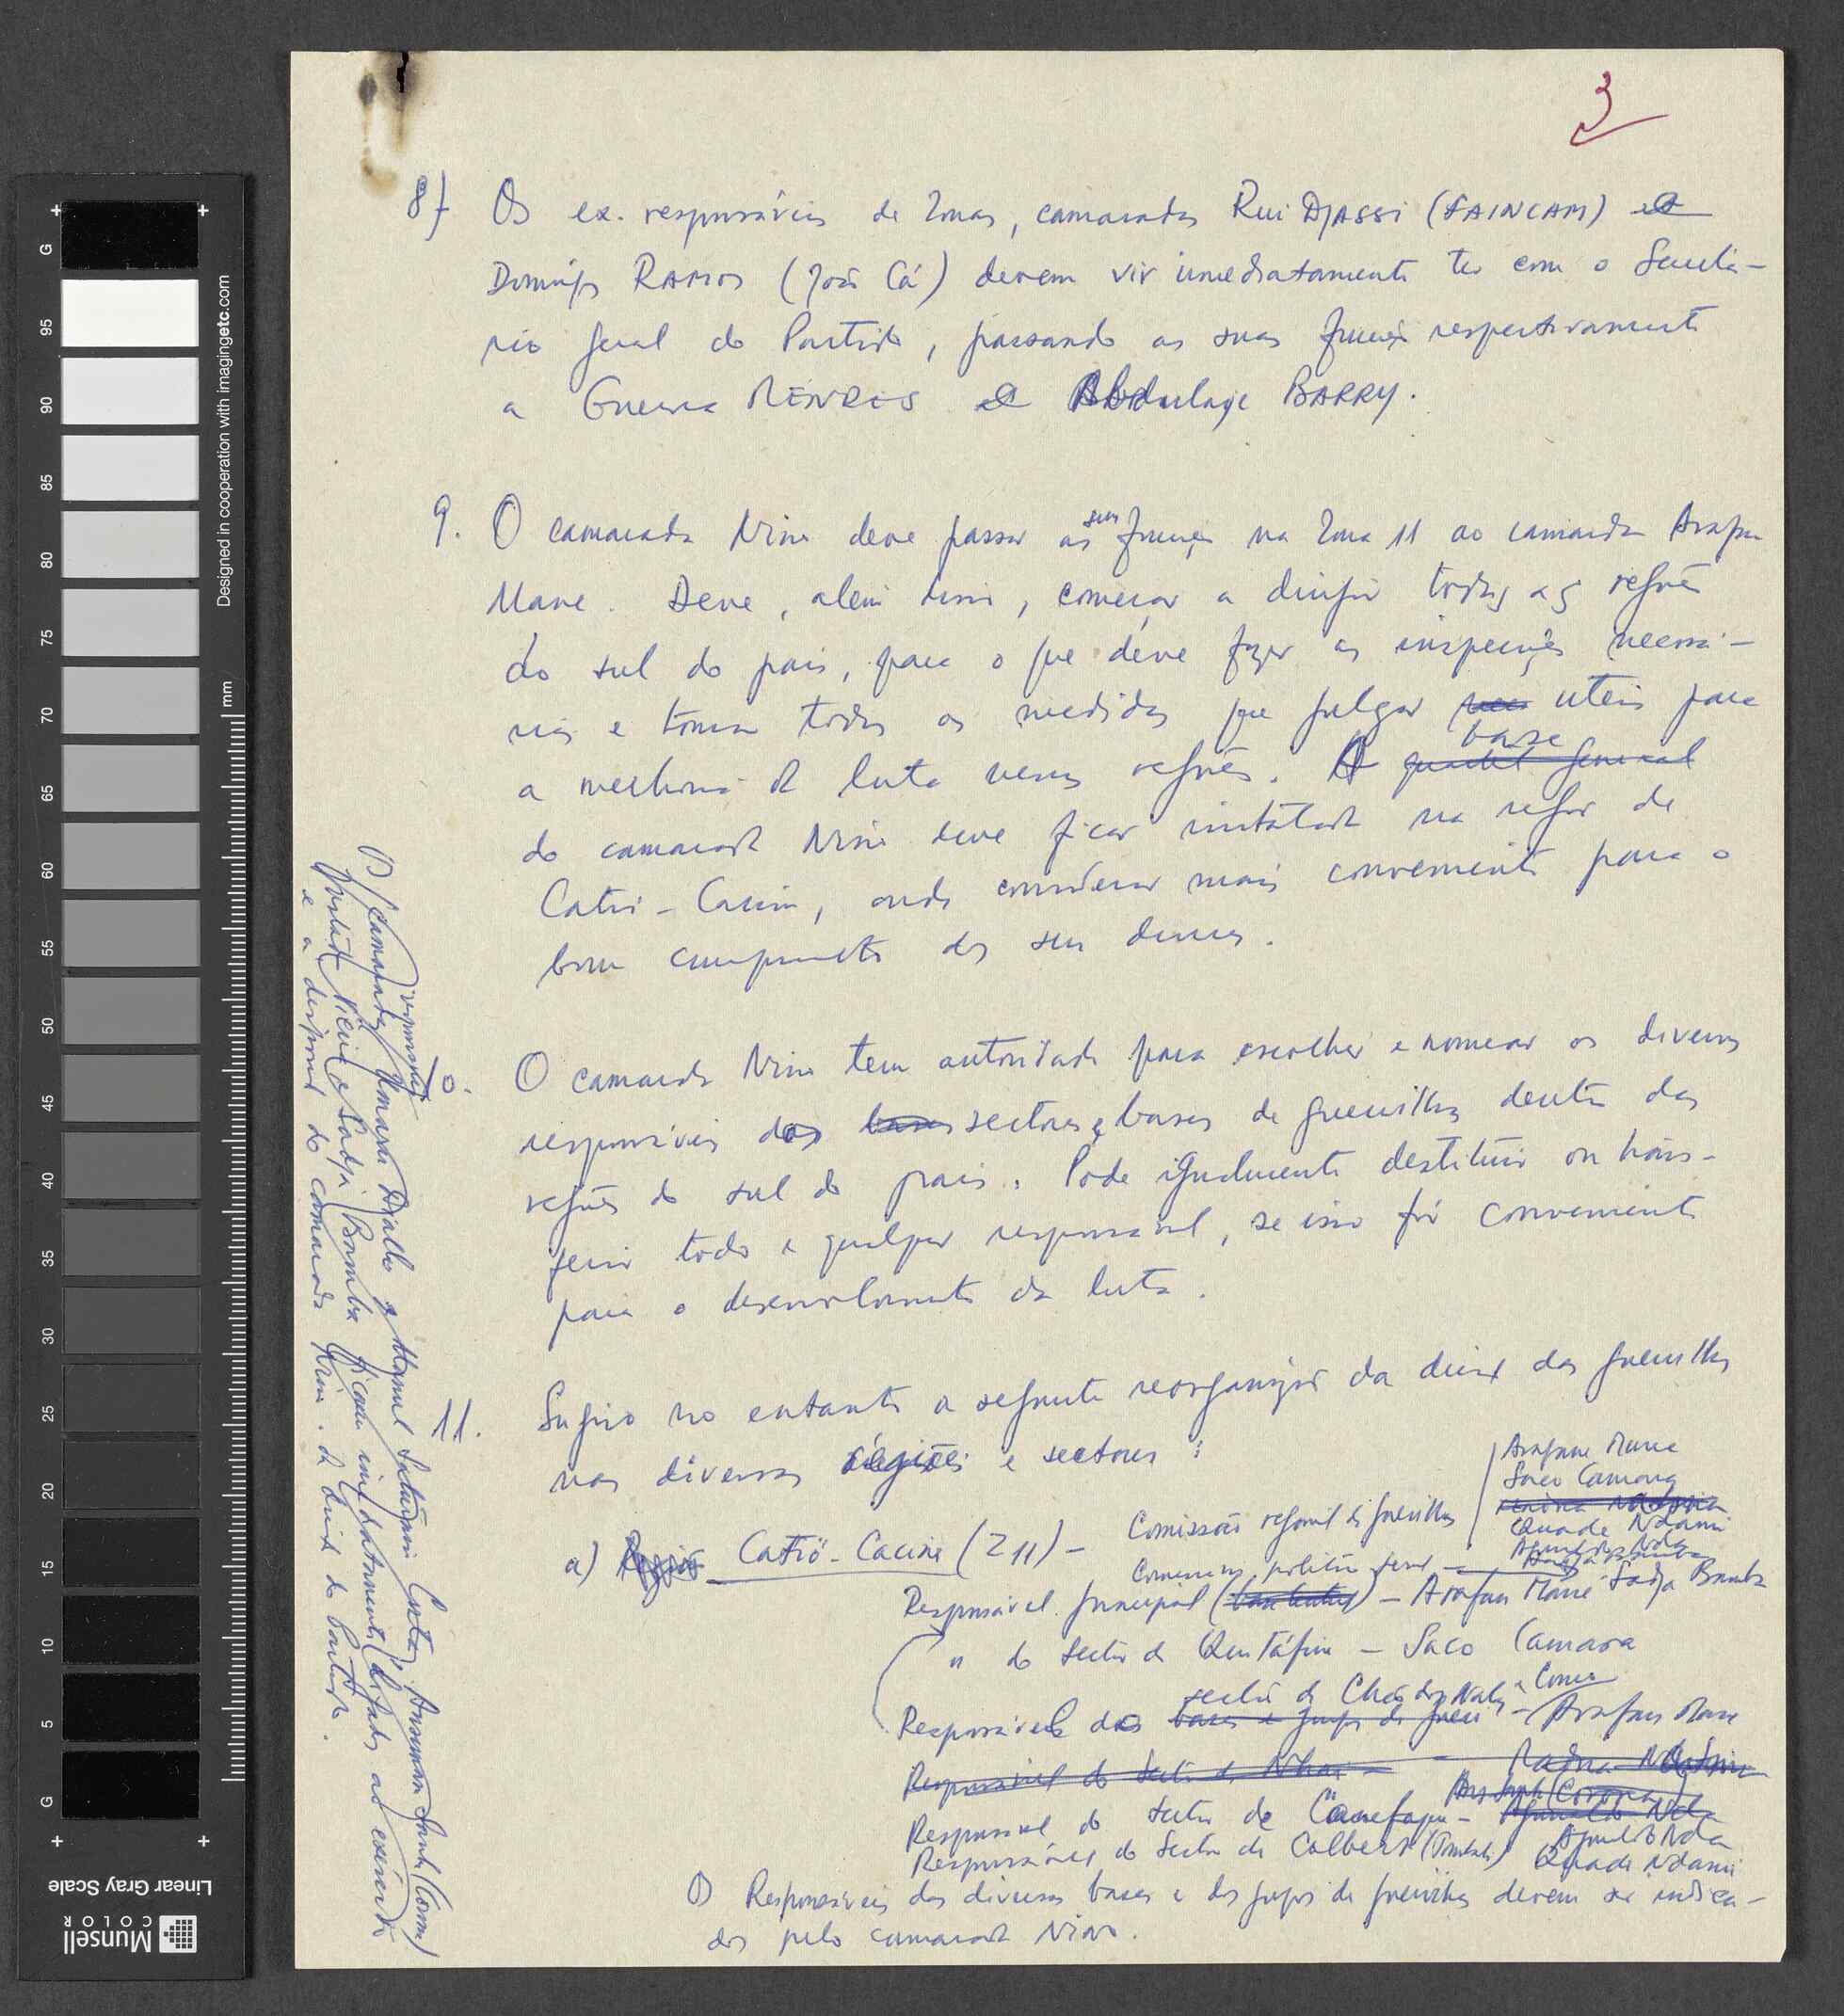 3
8) Os ex. responsáveis de Zonas, camaradas Rui DJASSI (FAINCAM) e
Domingos RAMOS (João Cá) devem vir imediatamente ter com o Secretá-
rio geral do Partido, passando as suas funções respectivamente
a Guerra MENDES e Abdulaye BARRY.
9. O camarada Nino deve passar as suas funções na Zona 11 ao camarada Arafan
Mane. Deve, além disso, começar a dirigir todas as regiões
do sul do país, para o que deve fazer as inspecções necessá-
rias e tomar todas as medidas que julgar uteis para
a melhoria da luta nessas regiões. A base
do camarada Nino deve ficar instalada na região de
Catió - Cacine, onde considerar mais conveniente para o
bom cumprimento dos seus deveres.
10. O camarada Nino tem autoridade para escolher e nomear os diversos
responsáveis dos sectores e bases de guerrilha dentro das
regiões do sul do país. Pode igualmente destituir ou trans-
ferir todo e qualquer responsável, se isso fôr conveniente
para o desenvolvimento da luta.
11. Sugiro no entanto a seguinte reorganização da direcção das guerrilhas
nas diversas regiões e sectores:
a) Catió - Cacine (Z 11) - Comissão regional de guerrilhas
Arafane Mane
Saco Camara
Quade Ndami
Comissário político geral - Sadja Bamba
Responsável principal - Arafan Mané
" do sector de Quitáfine - Saco Camara
Responsável do sector de - Arafan Mane
Responsavel do sector de
Agnelo Nda
Responsáveis do sector de Calbert (Tombali) Quade Ndami
Os Responsáveis das diversas bases e dos grupos de guerrilhas devem ser indica-
dos pelo camarada NINO.
Os camaradas responsáveis Umaro Djallo, Manuel Saturnino Costa,
e Sadja Bamba ficam imediatamente ao exército
e a dispor do camarada Nino e da direcção do Partido.
Designed in cooperation with imagingetc.com
mm
G
95
90
85
80
75
70
65
60
55
50
45
40
35
30
25
20
15
10
5
G
Linear Gray Scale
Munsell
COLOR